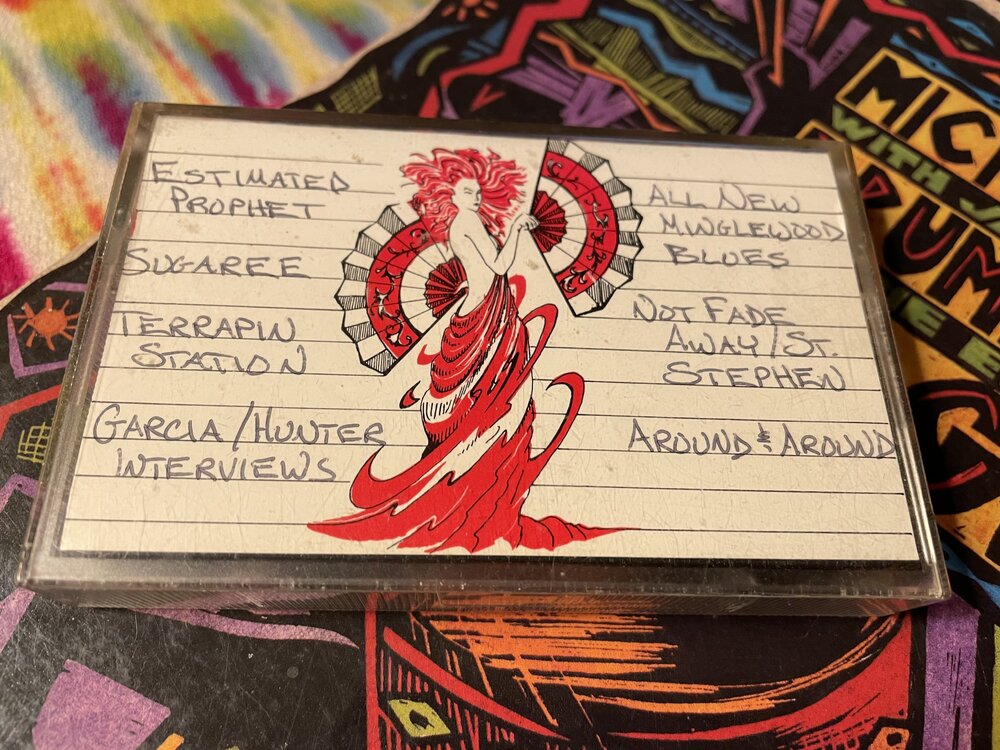 ESTIMATED
PROPHET
SUGAREE
TERRAPIN
STATION
GARCIA/HUNTER
INTERVIEWS
ALL NEW
MINGLEWOOD
BLUES
NOT FADE
AWAY/ST.
STEPHEN
AROUND & AROUND
MIC
WITH